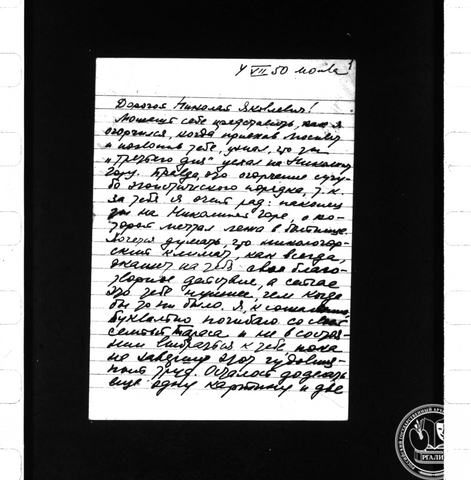 4 VII 50 Москва
Дорогой Николай Яковлевич!
Можешь себе представить, как я
огорчился, когда приехав Москву
и позвонив тебе, узнал, что ты
"третьего дня" уехал на Николину
Гору. Правда, это огорчение сугу-
бо эгоистического порядка, т.к.
за тебя я очень рад: наконец
ты на Николиной Горе, о ко-
торой мечтал лежа в больнице.
Хочется думать, что никологор-
ский климат, как всегда,
окажет на тебя свое благо-
творное действие, а сейчас
это тебе нужнее, чем когда
бы то ни было. Я, к сожалению,
буквально погибаю со своей
семьей Тараса и не в состоя-
нии выбраться к тебе пока
не завершу этот чудовищ-
ный труд. Осталось доделать
еще одну картину и две
РГАЛИ